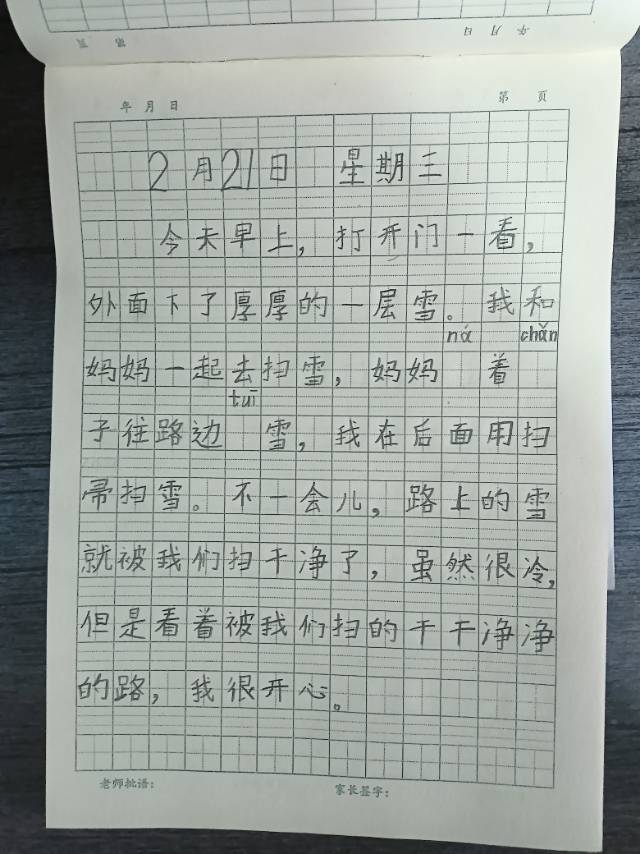 第 页 年 月 日
年 月 日 第 页
2月21日 星期三
今天早上，打开门一看，
外面下了厚厚的一层雪。我和
ná chǎn
妈妈一起去扫雪，妈妈 着
tuī
子往路边 雪，我在后面用扫
帚扫雪。不一会儿，路上的雪
就被我们扫干净了，虽然很冷，
但是看着被我们扫的干干净净
的路，我很开心。
老师批语： 家长签字：